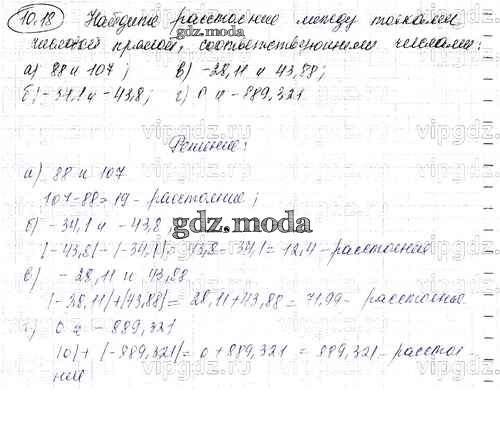 10.18 Найдите расстояние между точками
числовой прямой, соответствующими числам:
а) 88 и 107; в) -28,11 и 43,88;
б) -34,1 и -43,8; г) 0 и -889,321
Решение:
а) 88 и 107
107-88=19 - расстояние;
б) -34,1 и -43,8
gdz.moda
|-43,8|-|-34,1|=43,8-34,1=12,4 - расстояние
в) -28,11 и 43,88
|-28,11|+|43,88|=28,11+43,88=71,99 - расстояние
г) 0 и -889,321
|0|+|-889,321|=0+889,321=889,321 - расстоя-
ние